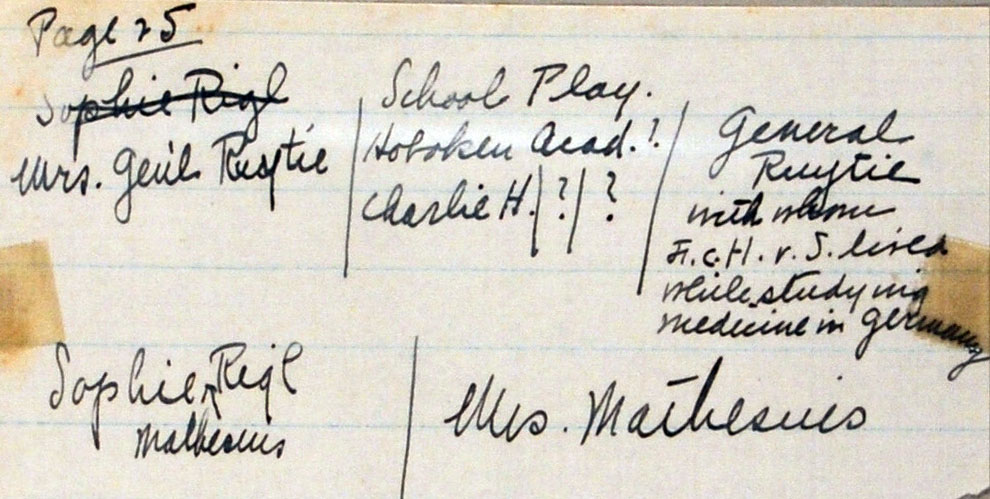 Page 25
Sophie Rigl
Mrs. Genl Ruytie
School Play.
Hoboken Acad. ?
Charlie H. | ? | ?
General
Ruytie
with whom
F.C.H. v. S. lived
while studying
medicine in Germany
Sophie Rigl
Mathesius
Mrs. Mathesius